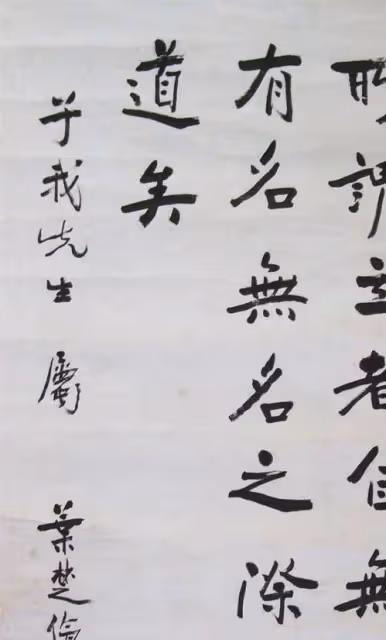 謂玄者無
有名無名之際
道矣
于我先生 屬
葉楚傖